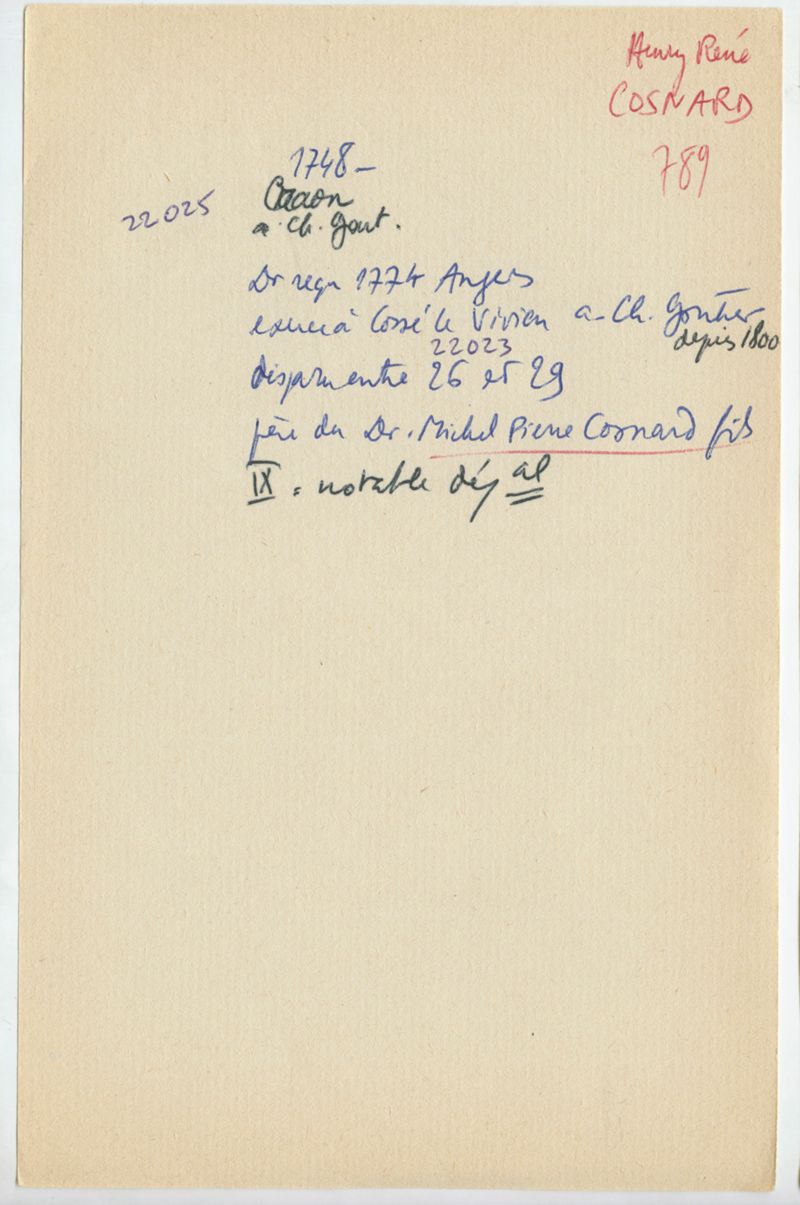 Henry René
COSNARD
789
1748 –
22025
Craon
a. Ch. Gont.
Dr reçu 1774 Angers
exerce à Cossé le Vivien a - Ch. Gontier
depuis 1800
22023
disparu entre 26 et 29
père du Dr. Michel Pierre Cosnard fils
IX = notable dép al